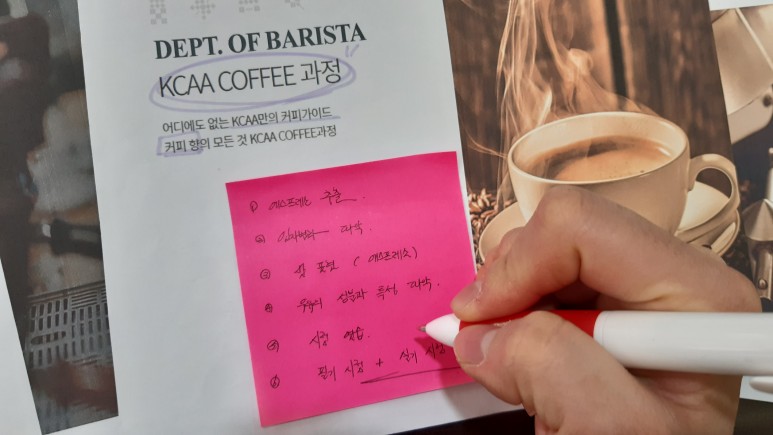 DEPT. OF BARISTA
KCAA COFFEE 과정
어디에도 없는 KCAA만의 커피가이드
커피 향의 모든 것 KCAA COFFEE과정
① 에스프레소 추출.
② 입자변화 파악
③ 맛 표현 ( 에스프레소 )
④ 우유의 성분과 특성 파악.
⑤ 시험 연습.
⑥ 필기 시험 + 실기 시험